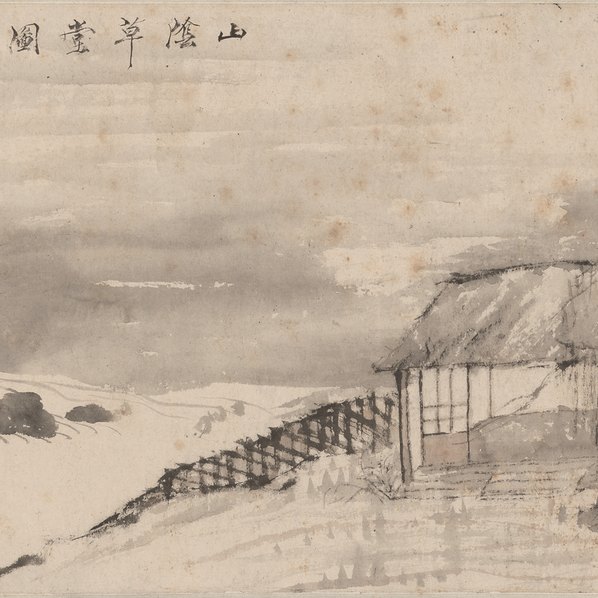 山陰草堂圖